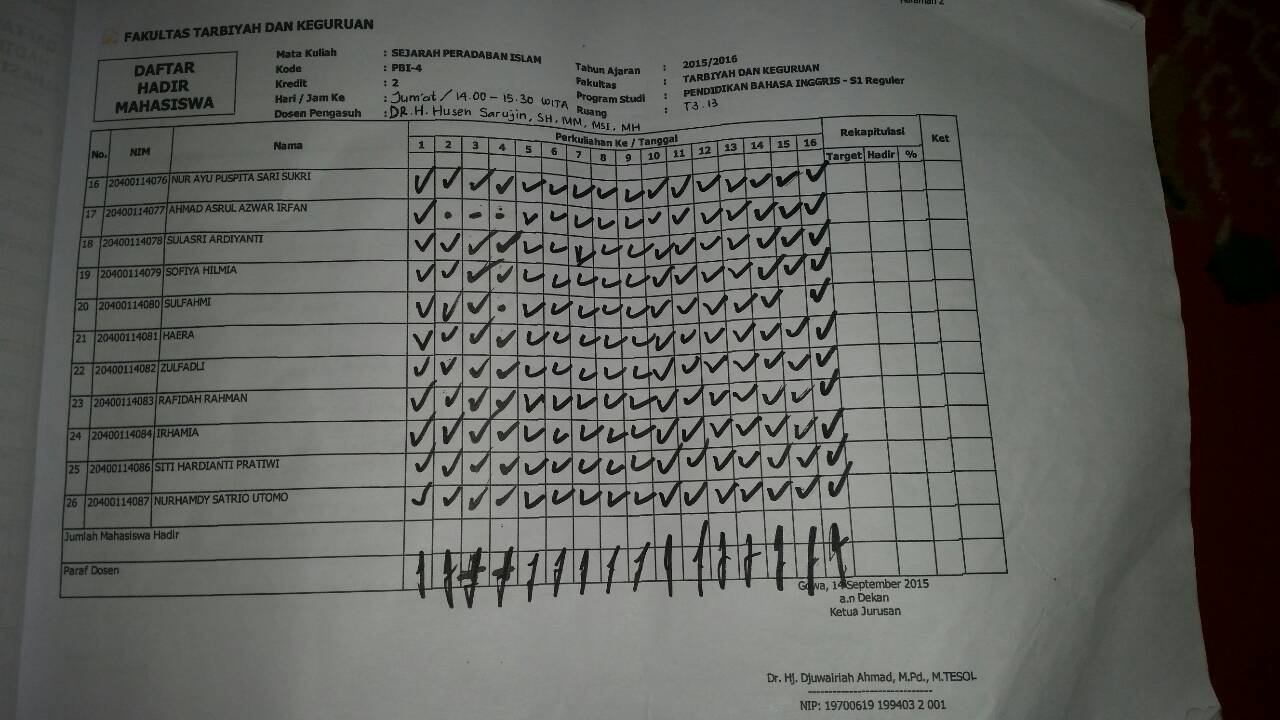 Halaman 2
FAKULTAS TARBIYAH DAN KEGURUAN
DAFTAR
HADIR
MAHASISWA
Mata Kuliah : SEJARAH PERADABAN ISLAM
Kode : PBI-4
Kredit : 2
Hari / Jam Ke : Jum'at / 14.00 - 15.30 WITA
Dosen Pengasuh : DR. H. Husen Sarujin, SH, MM, MSI, MH
Tahun Ajaran : 2015/2016
Fakultas : TARBIYAH DAN KEGURUAN
Program Studi : PENDIDIKAN BAHASA INGGRIS - S1 Reguler
Ruang : T3.13
No. NIM Nama Perkuliahan Ke / Tanggal Rekapitulasi Ket
1 2 3 4 5 6 7 8 9 10 11 12 13 14 15 16 Target Hadir %
16 20400114076 NUR AYU PUSPITA SARI SUKRI ✓ ✓ ✓ ✓ ✓ ✓ ✓ ✓ ✓ ✓ ✓ ✓ ✓ ✓ ✓ ✓
17 20400114077 AHMAD ASRUL AZWAR IRFAN ✓ • - ÷ ✓ ✓ ✓ ✓ ✓ ✓ ✓ ✓ ✓ ✓ ✓ ✓
18 20400114078 SULASRI ARDIYANTI ✓ ✓ ✓ ✓ ✓ ✓ ✓ ✓ ✓ ✓ ✓ ✓ ✓ ✓ ✓ ✓
19 20400114079 SOFIYA HILMIA ✓ ✓ ✓ ✓ ✓ ✓ ✓ ✓ ✓ ✓ ✓ ✓ ✓ ✓ ✓ ✓
20 20400114080 SULFAHMI ✓ ✓ ✓ • ✓ ✓ ✓ ✓ ✓ ✓ ✓ ✓ ✓ ✓ ✓
21 20400114081 HAERA ✓ ✓ ✓ ✓ ✓ ✓ ✓ ✓ ✓ ✓ ✓ ✓ ✓ ✓ ✓ ✓
22 20400114082 ZULFADLI ✓ ✓ ✓ ✓ ✓ ✓ ✓ ✓ ✓ ✓ ✓ ✓ ✓ ✓ ✓ ✓
23 20400114083 RAFIDAH RAHMAN ✓ ✓ ✓ ✓ ✓ ✓ ✓ ✓ ✓ ✓ ✓ ✓ ✓ ✓ ✓ ✓
24 20400114084 IRHAMIA ✓ ✓ ✓ ✓ ✓ ✓ ✓ ✓ ✓ ✓ ✓ ✓ ✓ ✓ ✓ ✓
25 20400114086 SITI HARDIANTI PRATIWI ✓ ✓ ✓ ✓ ✓ ✓ ✓ ✓ ✓ ✓ ✓ ✓ ✓ ✓ ✓ ✓
26 20400114087 NURHAMDY SATRIO UTOMO ✓ ✓ ✓ ✓ ✓ ✓ ✓ ✓ ✓ ✓ ✓ ✓ ✓ ✓ ✓ ✓
Jumlah Mahasiswa Hadir
Paraf Dosen
Gowa, 14 September 2015
a.n Dekan
Ketua Jurusan
Dr. Hj. Djuwairiah Ahmad, M.Pd., M.TESOL
NIP: 19700619 199403 2 001